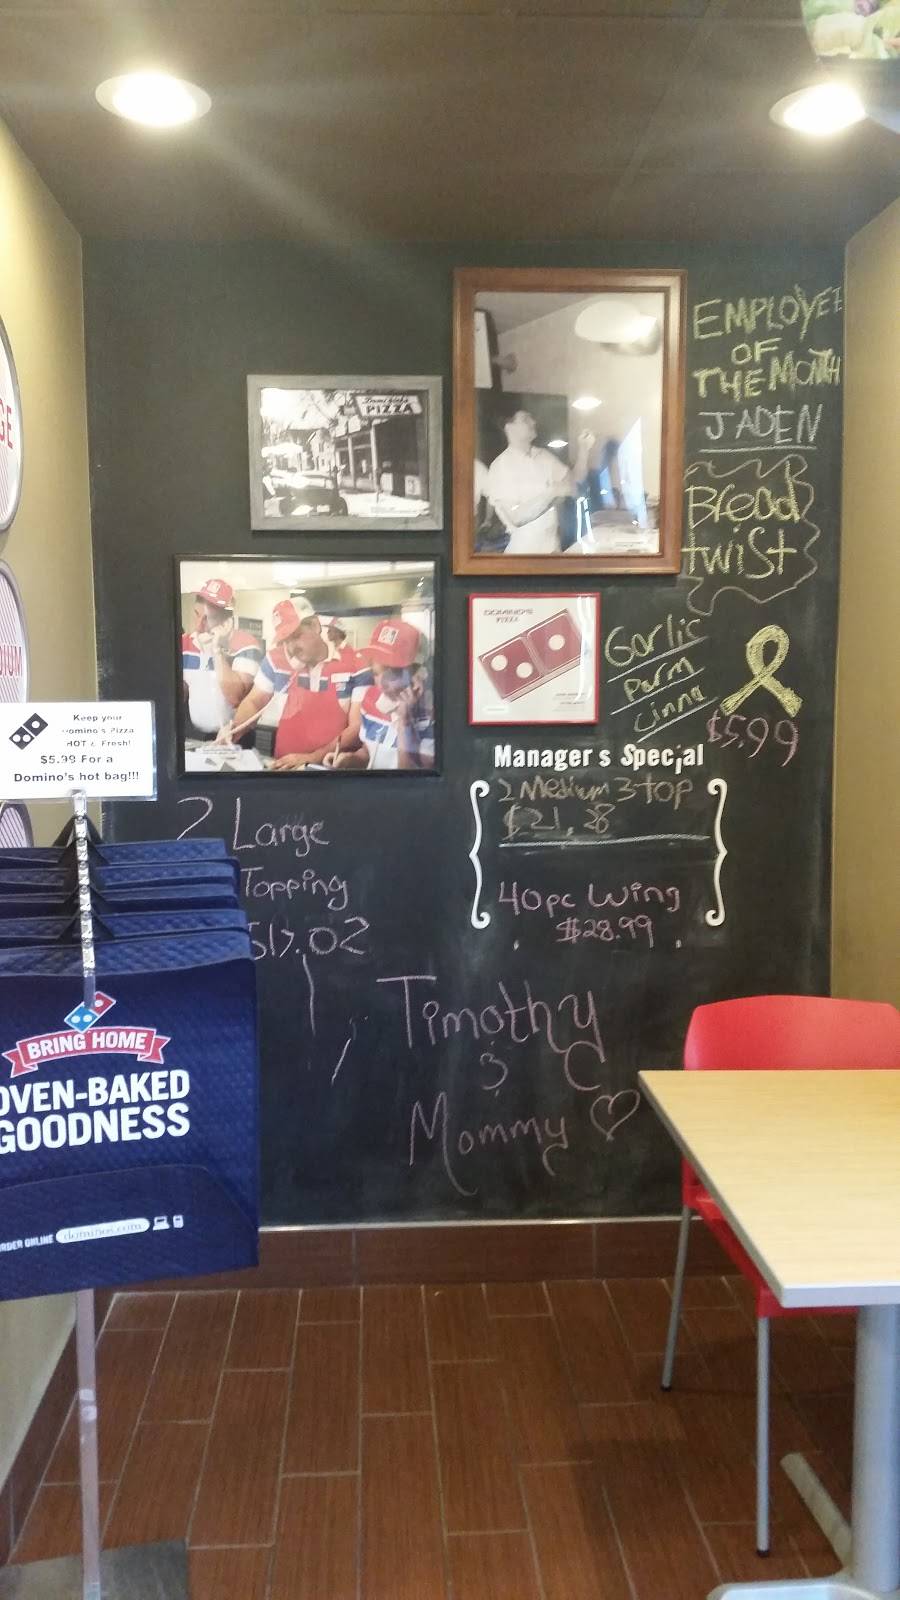 EMPLOYEE
OF
THE MONTH
JADEN
Bread
twist
Garlic
parm
cinna
$5.99
PIZZA
DOMINO'S
PIZZA
Manager s Special
2 Medium 3 top
$21.28
40pc Wing
$28.99
2 Large
Topping
Timothy
&
Mommy
GE
DIUM
Keep your
Domino's Pizza
HOT & Fresh!
$5.99 For a
Domino's hot bag!!!
BRING HOME
OVEN-BAKED
GOODNESS
ORDER ONLINE dominos.com